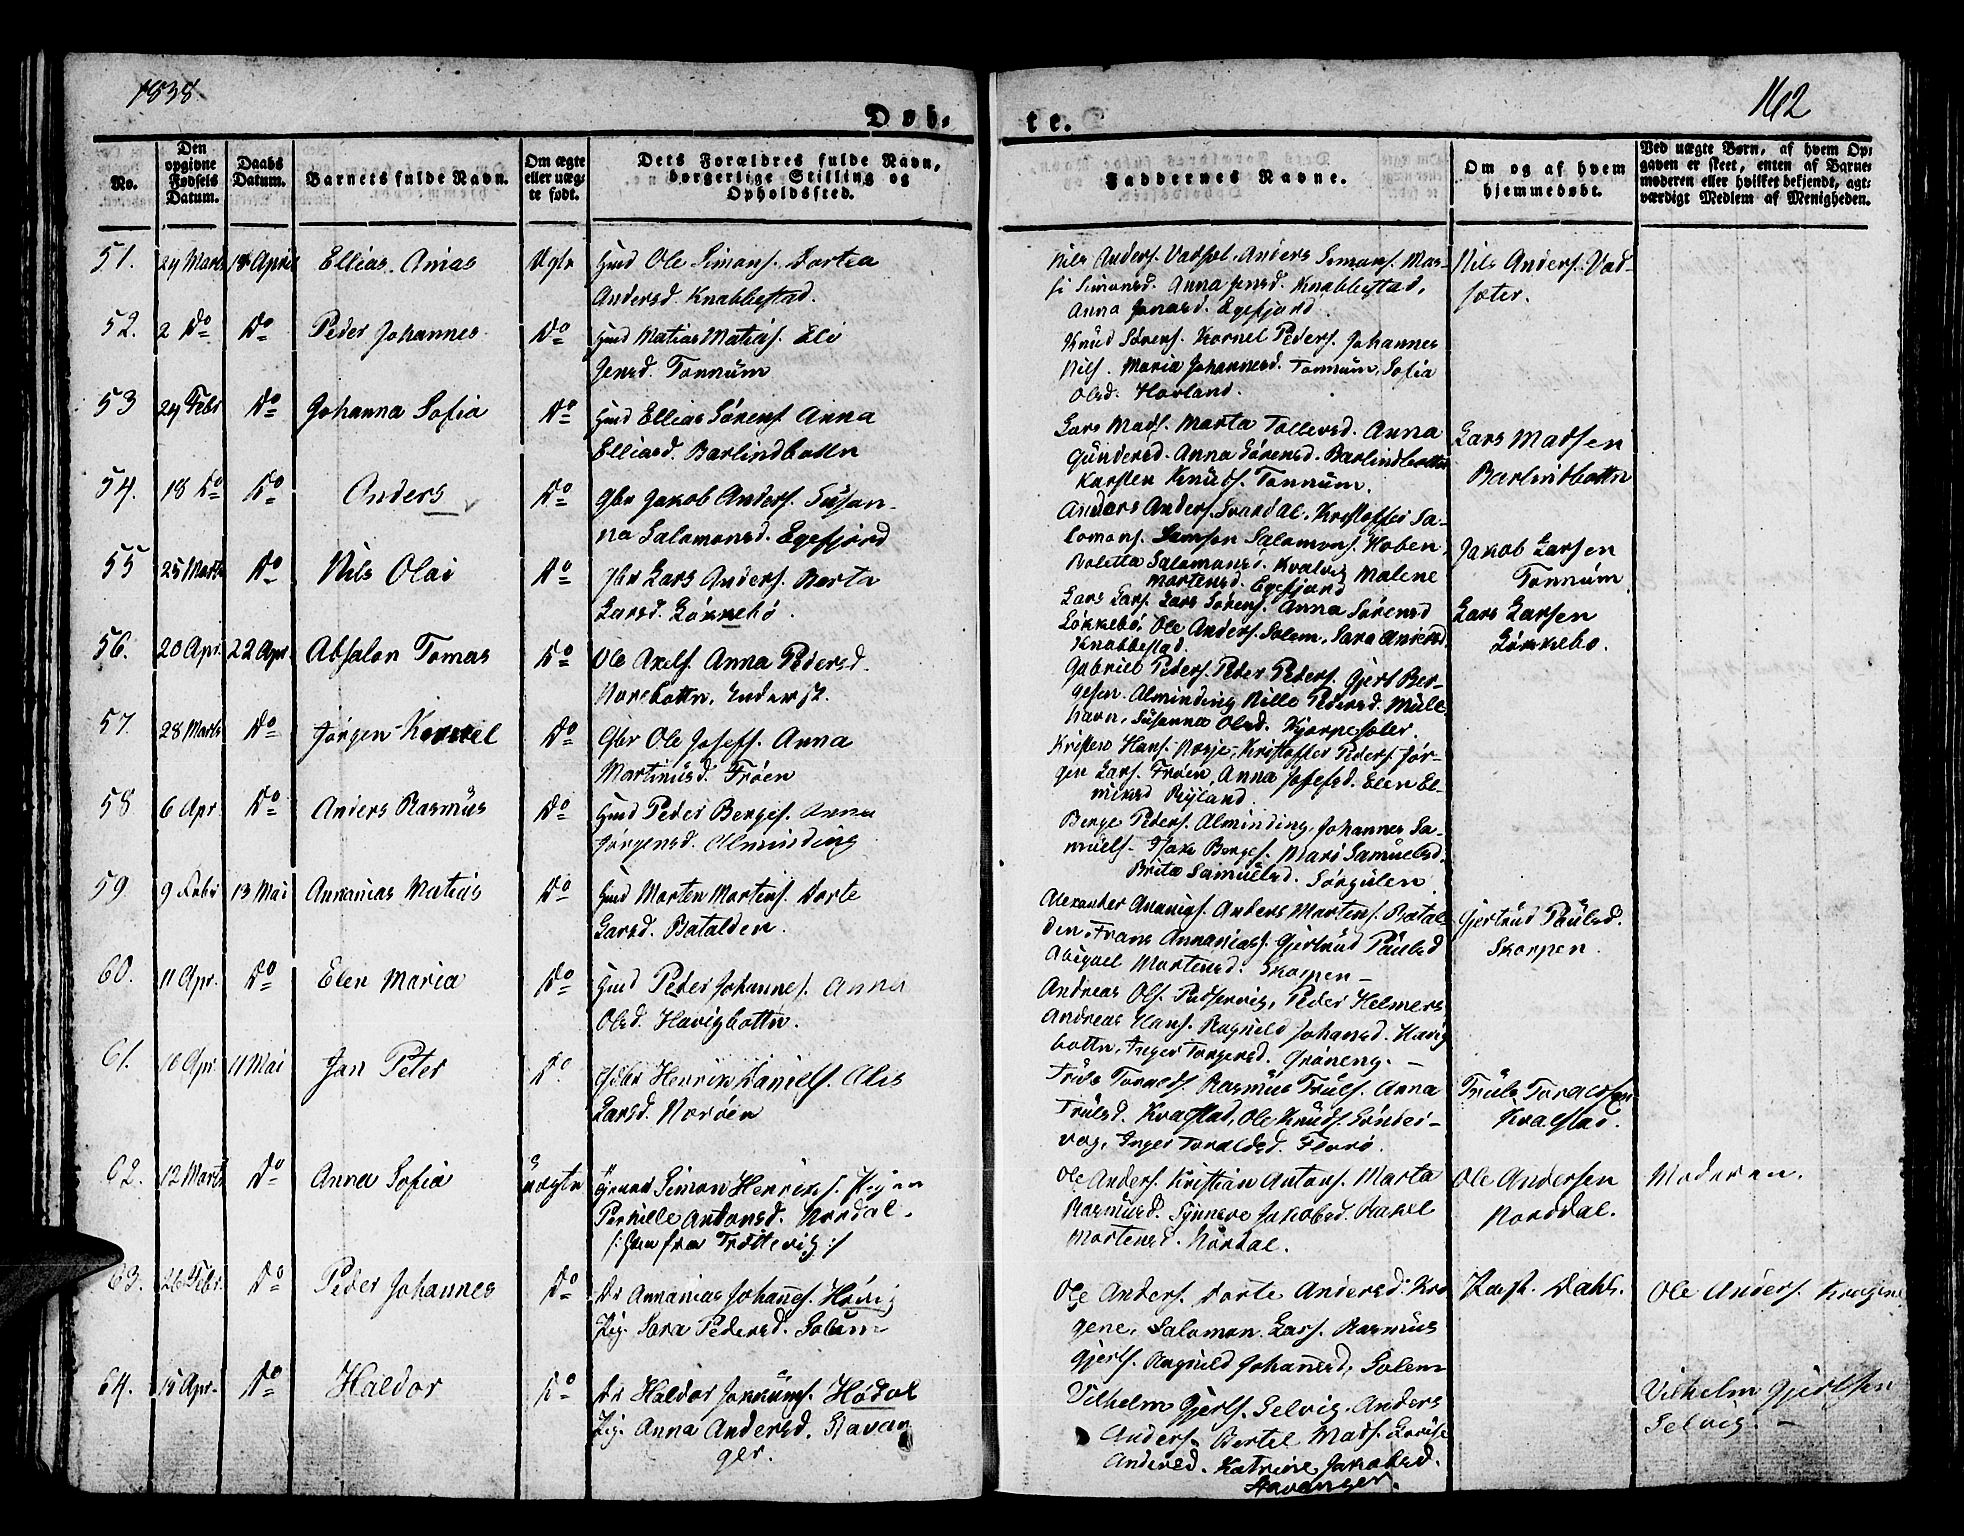 1838
162
Døb-
te.
No.
Den opgivne Fødsels Datum.
Daabs Datum.
Barnets fulde Navn.
Om ægte eller uægte født.
Dets Forældres fulde Navn, borgerlige Stilling og Opholdssted.
Faddernes Navne.
Om og af hvem hjemmedøbt.
Ved uægte Børn, af hvem Opgaven er skeet, enten af Barnemoderen eller hvilket bekjendt, agtværdigt Medlem af Menigheden.
51. 24 Marts 18 April Ellias Anias Ægte Hmd Ole Simons. Dortea
Andersd. Knabbestad.
Nils Anders. Vadset, Anders Simons. Mar-
si Simonsd. Anna Jensd. Knabbestad,
Anna Jonasd. Egefjord.
Nils Anders. Vad-
sæter.
52. 2 Do Do Peder Johannes Do Hmd Matias Matias. Eli
Jensd. Tonnum
Knud Sørens. Kornel Peders. Johannes
Nils. Maria Johannesd. Tonnum, Sofia
Olsd. Horland.
53 24 Febr Do Johanna Sofia Do Hmd Ellias Sørens. Anna
Elliasd. Barlindbotn
Lars Mads. Marta Tollersd. Anna
Gundersd. Anna Sørensd. Barlindbotten
Karsten Knuds. Tonnum.
Lars Madsen
Barlindbottn
54. 18 Do Do Anders Do Gbr Jakob Anders. Susan-
na Salomonsd. Egefjord
Anders Anders. Svardal, Kristoffer Sa-
lomons. Samson Salomons. Hoben,
Boletta Salamonsd. Kvalvig Malene
Mortensd. Egefjord
Jakob Larsen
Tonnum
55 25 Marts Do Nils Olai Do Gbr Lars Anders. Marta
Larsd. Løkkebø.
Lars Lars. Lars Sørens. Anna Sørensd
Løkkebø, Ole Anders. Solem, Sara Andersd
Knabbestad.
Lars Larsen
Løkkebo.
56. 20 Apr. 22 Apr. Absalon Tomas Do Ole Axels. Anna Pedersd.
Norebottn,
Gabriel Peders. Peder Peders. Gjert Ber-
gesen. Alminding Nille Pedersd. Mule
havn, Susanna Olsd.
57. 28 Marts Do Jørgen Kornel Do Gbr Ole Josefs. Anna
Martinusd. Frøen
Kristen Hans. Kristoffer Peders Jør-
gen Lars. Frøen, Anna Josefsd. Elen El-
58 6 Apr Do Anders Rasmus Do Hmd Peder Berges. Anna
Jørgensd. Alminding
Berge Peders. Alminding, Johannes Sa-
muels. Berges. Mari Samuelsd.
Brita Samuelsd. Sørgulen.
59. 9 Febr 13 Mai Annanias Matias Do Hmd Morten Martins. Dorte
Larsd. Batalden.
Alexander Ananias. Anders Martens. Batal-
den, Frans Annanias. Gjertrud Paulsd
Abigael Mortensd. Skorpen -
Gjertrud Paulsd.
Skorpen.
60. 11 Apr. Do Elen Maria Do Hmd Peder Johannes. Anna
Olsd. Havigbottn.
Andreas Ols. Peder Helmers
Andreas Hans. Ragnild Johansd. Havig
bottn, Inger Torgersd. Grøneng. -
61. 10 Apr. 11 Mai Jan Peter Do. Gbr Henrik Daniels. Alis
Larsd. Norøen
Truls Toralds. Rasmus Truls. Anna
Trulsd. Kvagstad, Ole Knuds. Sønder-
vog, Inger Toraldsd. Florø.
Truls Toraldsen
Kvagstad.
62. 12 Marts Do Anna Sofia uægte Simon Henriks. Pigen
Pernille Antonsd. Nordal.
/: fra :/
Ole Anders. Kristian Antons. Marta
Rasmusd. Synneve Jakobsd. Rakel
Mortensd. Nordal.
Ole Andersen
Norddal.
Moderen.
63. 26 Febr. Do Peder Johannes Do Dr Annanias Johans.
Pig. Sara Pedersd. Solem
Ole Anders. Dorte Andersd. Kra
gene, Salomon Lars. Rasmus
Gjerts. Ragnild Johannesd, Solem
Dahl.
Ole Anders. Kragene
64. 15 Apr. Do Haldor Do Dr Haldor
Pig. Anna Andersd. Stavan
ger.
Vilhelm Gjerts. Selvig. Anders
Anders. Bertel Mads. Lovise
Andersd. Katrine Jakobsd.
Stavanger.
Vilhelm Gjertsen
Selvig. -